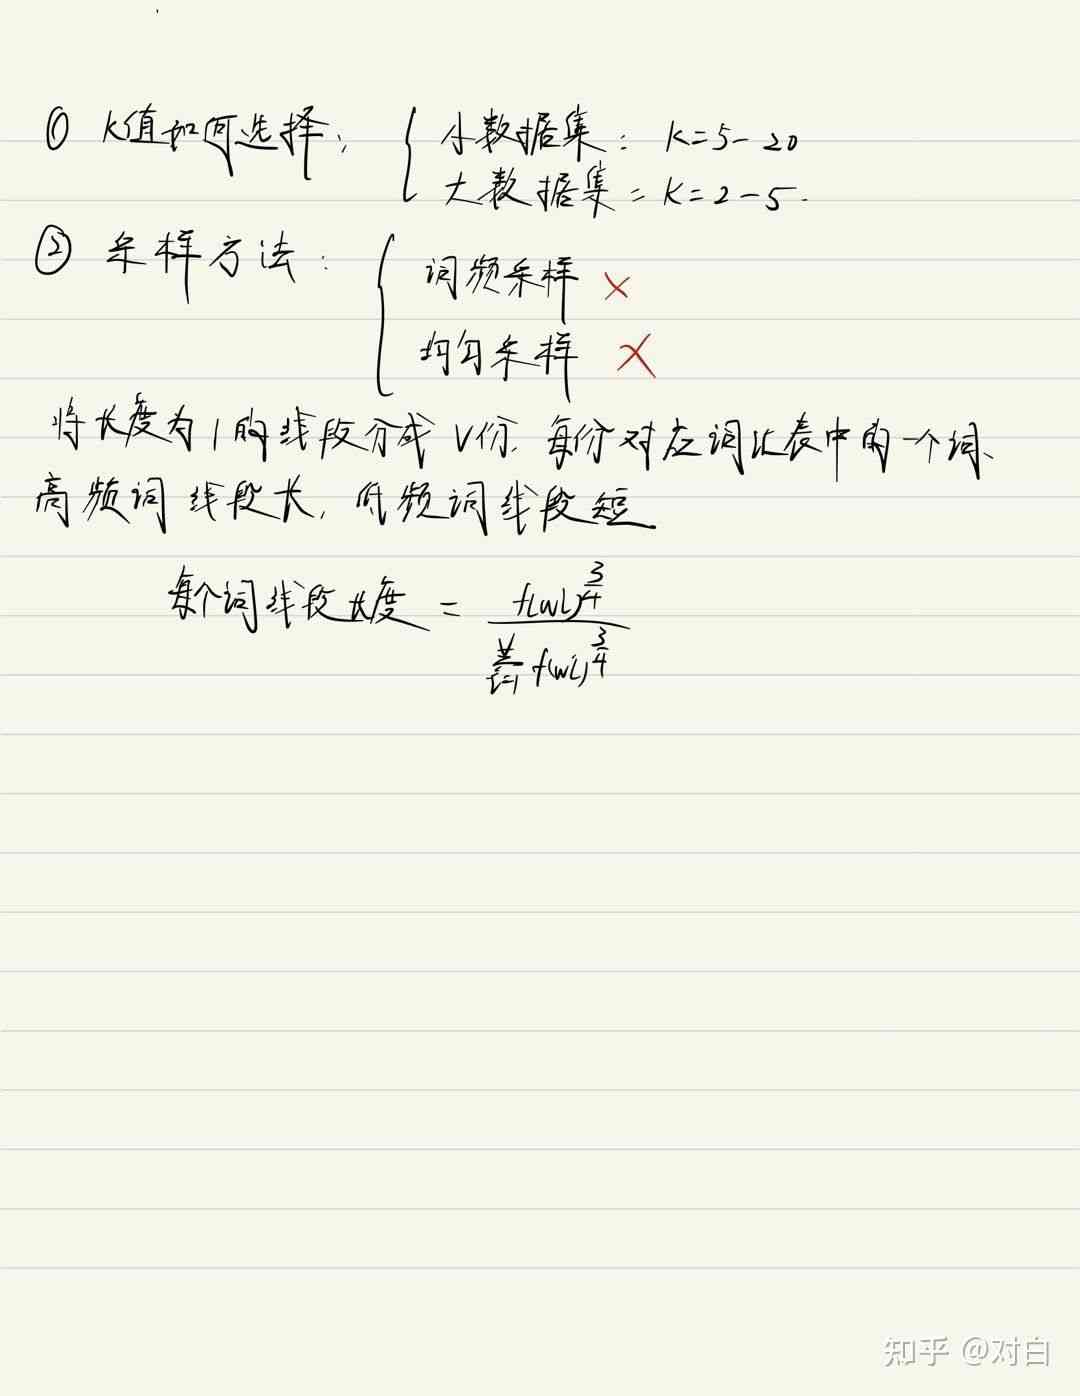 ① K值如何选择: { 小数据集: K=5-20
大数据集: K=2-5.
② 采样方法: { 词频采样 ×
均匀采样 ×
将长度为1的线段分成V份,每份对应词汇表中的一个词、
高频词线段长,低频词线段短
每个词线段长度 = f(wi)^{3/4} / \sum_{i=1}^{V} f(wi)^{3/4}
知乎 @对白